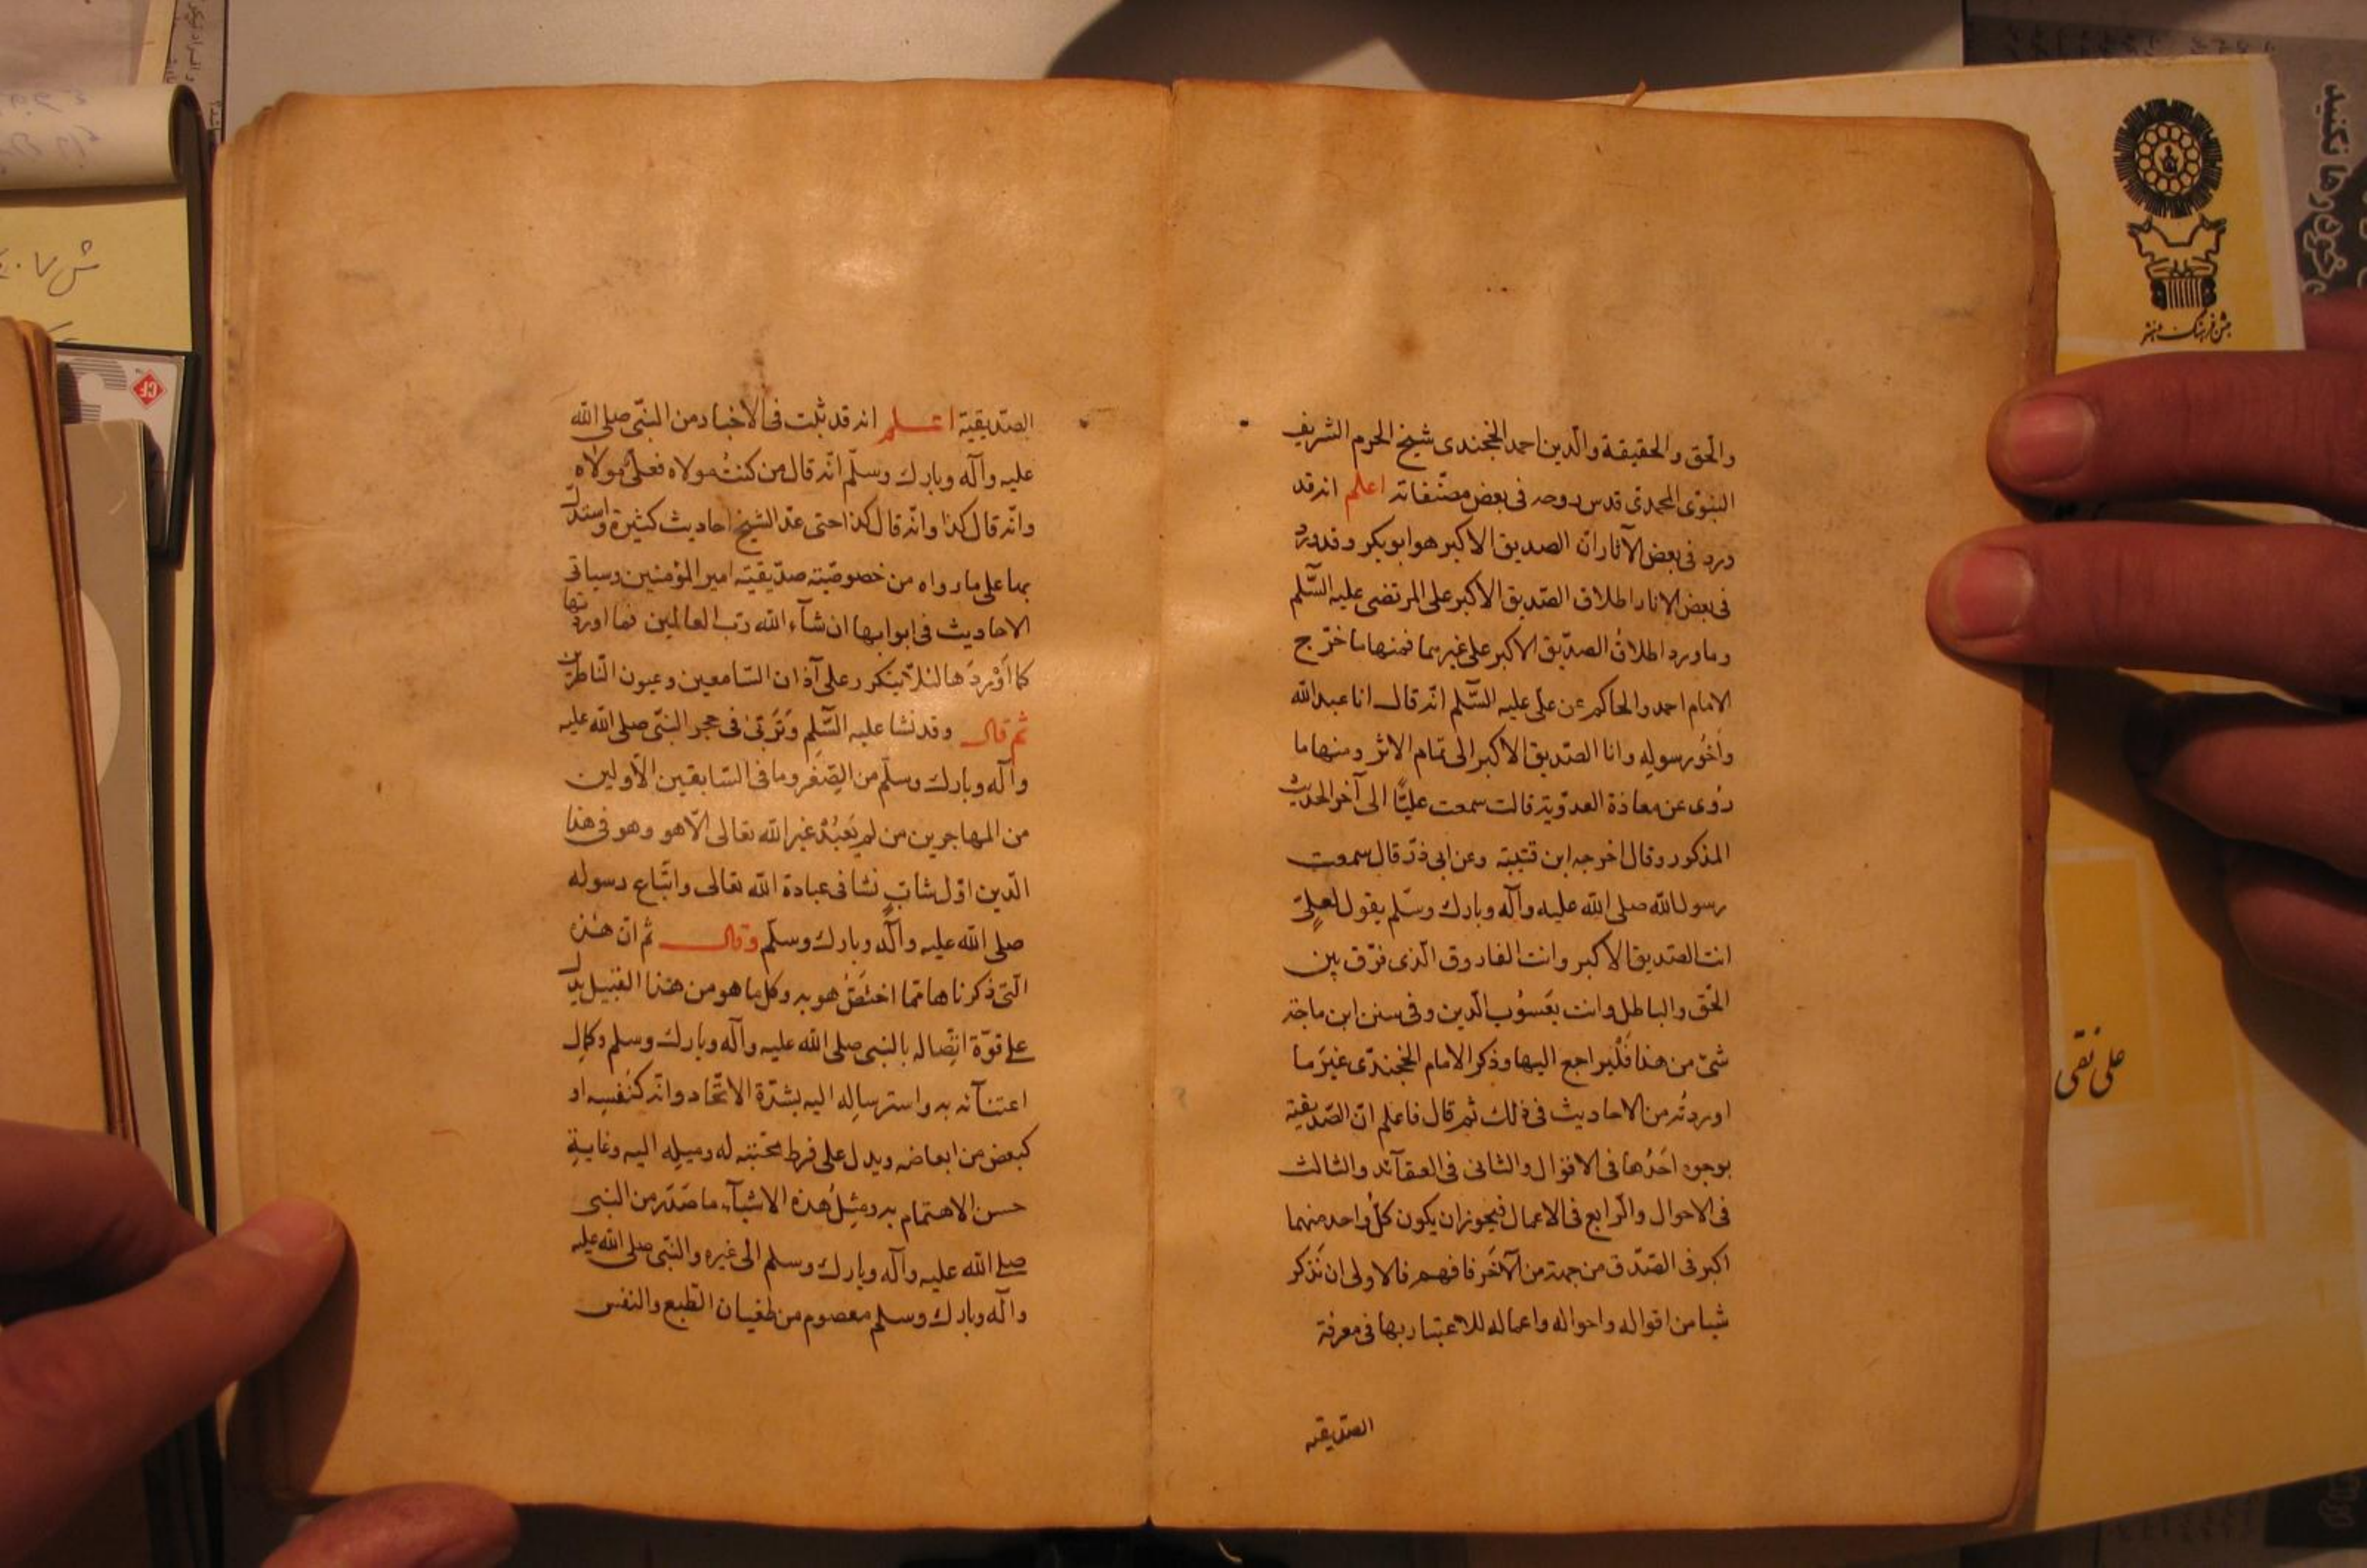 والحق والحقيقة والدين احمد الخجندى شيخ الحرم الشريف
النبوى المحمدى قدس روحه فى بعض مصنفاته اعلم انه قد
ورد فى بعض الآثار ان الصديق الاكبر هو ابوبكر وقد ورد
فى بعض الاثار اطلاق الصديق الاكبر على المرتضى عليه السّلم
وما ورد اطلاقُ الصدّيق الاكبر على غيرهما فمنها ما خرّج
الامام احمد والحاكم عن علىّ عليه السّلم انّه قال انا عبد الله
واَخُو رسوله وانا الصّديق الاكبر الى تمام الاثر ومنها ما
رُوى عن معاذة العدوّية قالت سمعت عليًّا الى آخر الحديث
المذكور وقال اخرجه ابن قتيبة وعن ابى ذرّ قال سمعت
رسول الله صلى الله عليه وآله وبارك وسلّم يقول لعلىّ
انت الصّديق الاكبر وانت الفاروق الّذى فرّق بين
الحّق والباطل وانت يَعسُوب الدّين وفى سنن ابن ماجة
شئ من هذا فَلْيراجع اليها وذكر الامام الخجندّى غيَر ما
اوردتُه من الاحاديث فى ذلك ثم قال فاعلم انّ الصّديقيّة
بوجوه احَدُها فى الاقوال والثانى فى العقآئد والثالث
فى الاحوال والرّابع فى الاعمال فيجوز ان يكون كلّ واحد منهما
اكبر فى الصّدق من جهة من الآخَر فافهم فالاولى ان نَذكر
شيا من اقواله واحواله واعماله للاعتبار بها فى معرفة
الصدّيقيه
الصّديقيّة اعلم انه قد ثبت فى الاخبار من النبّى صلى الله
عليه وآله وبارك وسلّم انّه قال من كنتُ مولاه فعلىّ مولاه
وانّه قال كذا وانّه قال كذا حتى عدّ الشيخ احاديث كثيرة واستدلّ
بها على ما رواه من خصوصيّته صدّيقيّة امير المؤمنين وسياتى
الاحاديث فى ابوابها ان شآء الله رَبّ العالمين فما اوردتها
كما اَوْردَها لئلاّ يتكرر على آذان السّامعين وعيون النّاظرين
ثم قال وقد نشا عليه السّلم وَتَربّى فى حجر النبّى صلى الله عليه
وآله وبارك وسلّم من الصِّغر وما فى السّابقين الأولين
من المهاجرين من لم يَعبُدْ غير الله تعالى الاّ هو وهو فى هذا
الدّين اوّل شابٍّ نشا فى عبادة الله تعالى واتّباع رسوله
صلى الله عليه وآله وبارك وسلّم وقال ثم انّ هذه
الّتى ذكرناها ممّا اختَصَّ هو به وكل ما هو من هذا القبيل يدل
على قوّة اتّصاله بالنبى صلى الله عليه وآله وبارك وسلم وكمال
اعتنآئه به واسترساله اليه بشدّة الاتّحاد وانّه كنَفسِه او
كبعض من ابعاضه ويدل على فرط محّبته له وميله اليه وغاية
حسن الاهتمام به ومِثلُ هذه الاشيآء ما صَدَر من النبى
صلى الله عليه وآله وبارك وسلم الى غيره والنبّى صلى الله عليه
وآله وبارك وسلم معصوم من طغيان الطّبع والنفس
جشن فرهنگ و هنر
على نقى